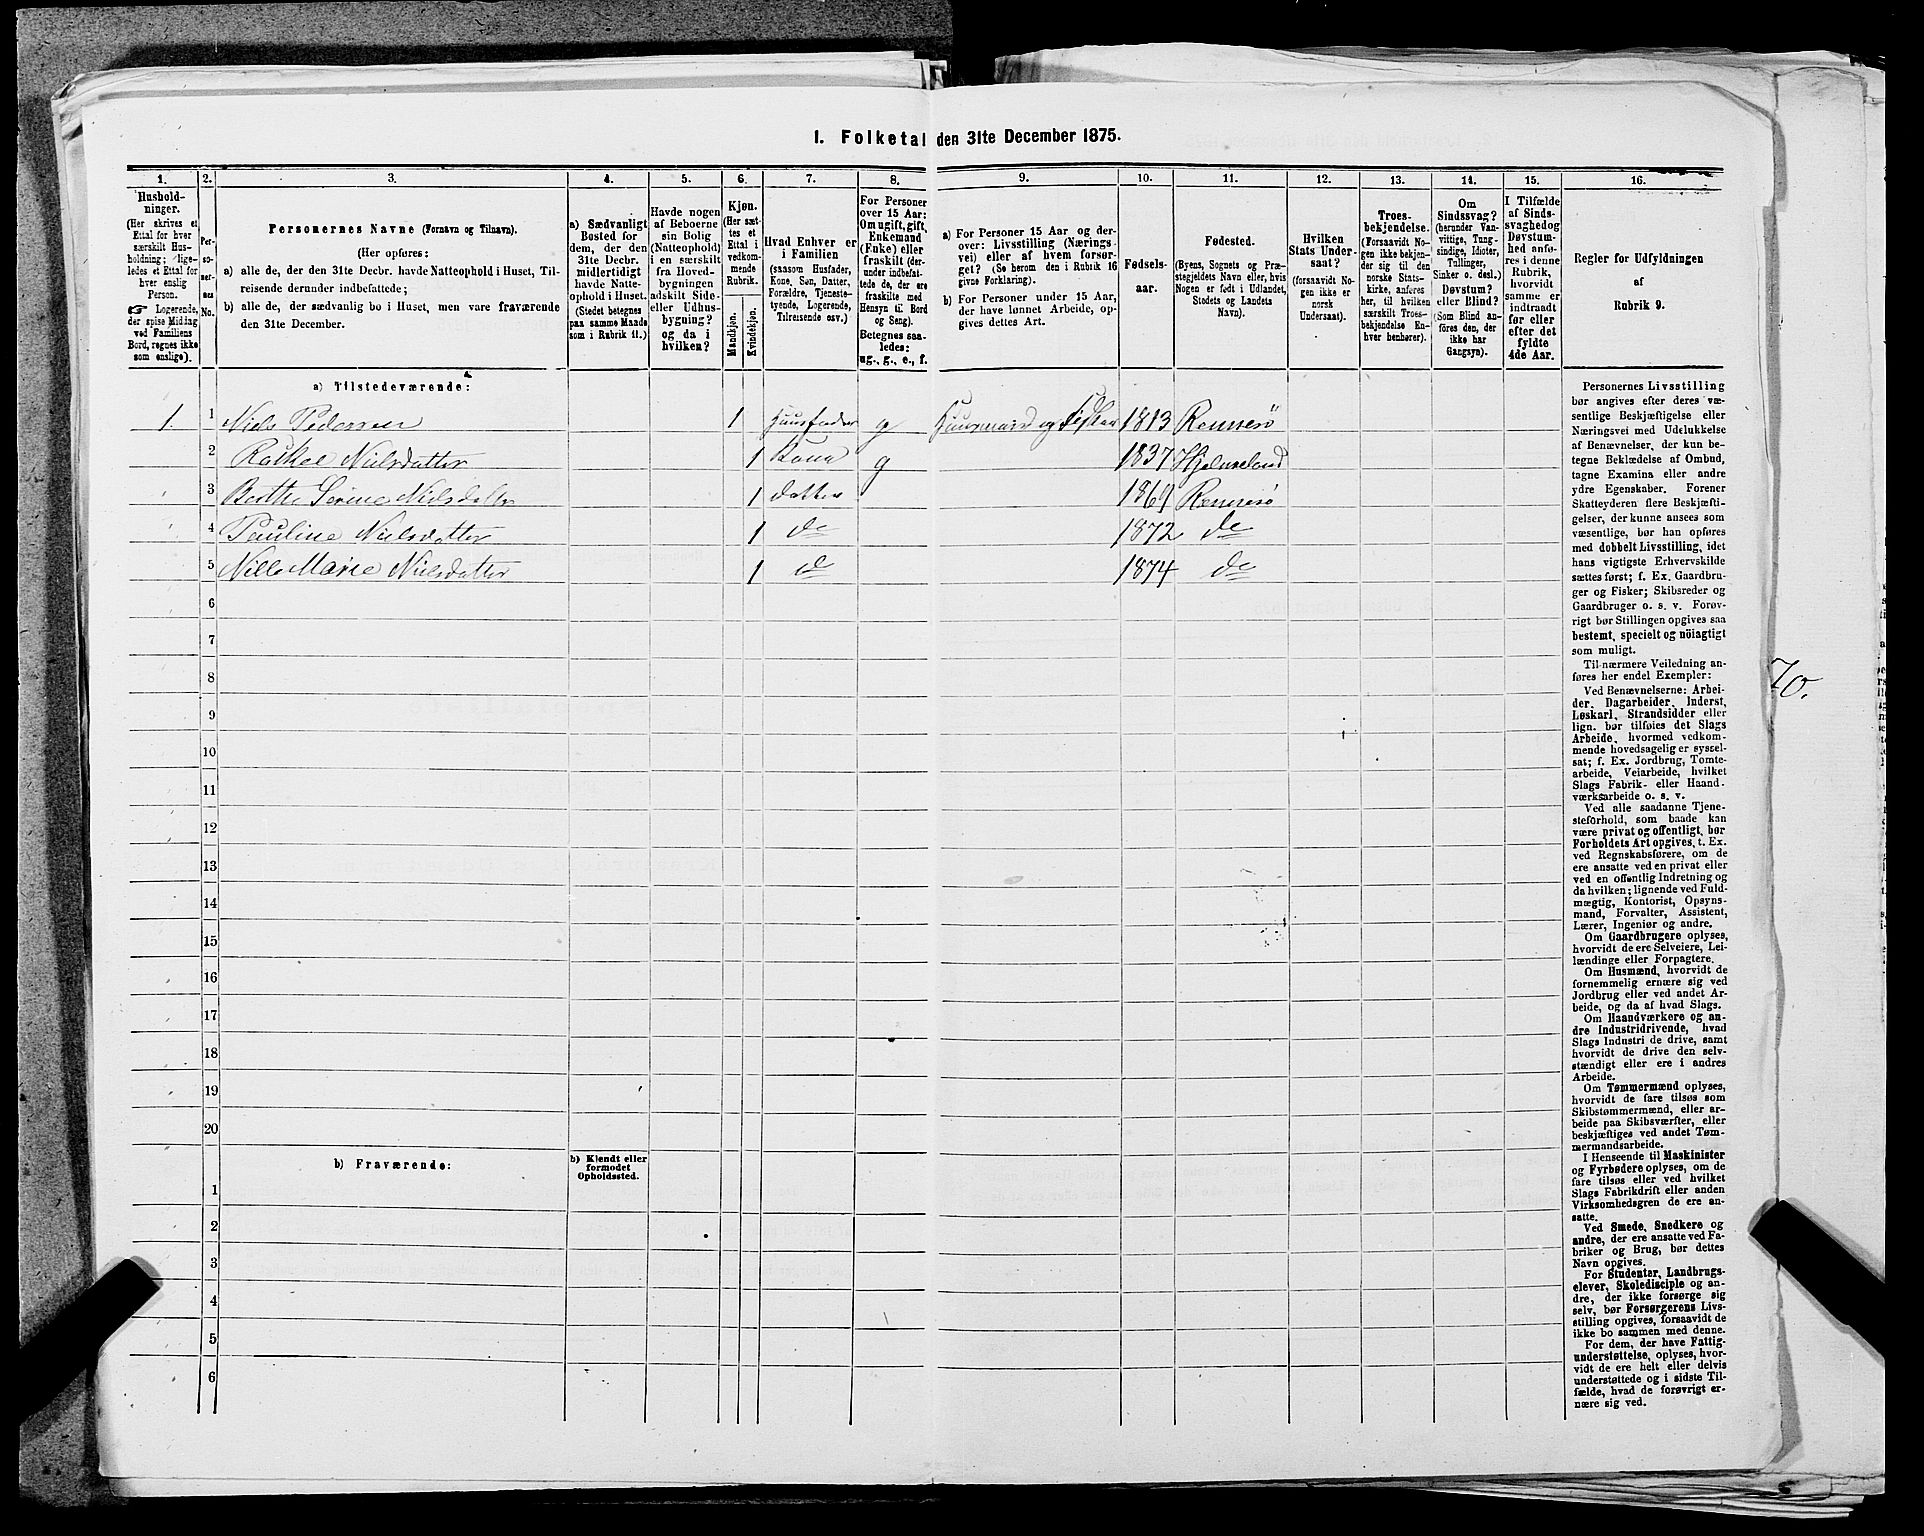 1. Folketal den 31te December 1875.
1.
2.
3.
4.
5.
6.
7.
8.
9.
10.
11.
12.
13.
14.
15.
16.
Hushold-
ninger.
(Her skrives et
Ettal for hver
særskilt Hus-
holdning; lige-
ledes et Ettal for
hver enslig
Person.
☞ Logerende,
der spise Middag
ved Familiens
Bord, regnes ikke
som enslige).
Per-
so-
ner-
nes
No.
Personernes Navne (Fornavn og Tilnavn).
(Her opføres:
a) alle de, der den 31te Decbr. havde Natteophold i Huset, Til-
reisende derunder indbefattede;
b) alle de, der sædvanlig bo i Huset, men vare fraværende
den 31te December.
a) Sædvanligt
Bosted for
dem, der den
31te Decbr.
midlertidigt
havde Natte-
ophold i Huset.
(Stedet betegnes
paa samme Maade
som i Rubrik 11.)
Havde nogen
af Beboerne
sin Bolig
(Natteophold)
i en særskilt
fra Hoved-
bygningen
adskilt Side-
eller Udhus-
bygning?
og da i
hvilken?
Kjøn.
(Her sæt-
tes et
Ettal i
vedkom-
mende
Rubrik.
Mandkjøn.
Kvindekjøn.
Hvad Enhver er
i Familien
(saasom Husfader,
Kone, Søn, Datter,
Forældre, Tjeneste-
tyende, Logerende,
Tilreisende osv.)
For Personer
over 15 Aar:
Om ugift, gift,
Enkemand
(Enke) eller
fraskilt (der-
under indbefat-
tede de, der ere
fraskilte med
Hensyn til Bord
og Seng).
Betegnes saa-
ledes:
ug., g., e., f.
a) For Personer 15 Aar og der-
over: Livsstilling (Nærings-
vei) eller af hvem forsør-
get? (Se herom den i Rubrik 16
givne Forklaring).
b) For Personer under 15 Aar,
der have lønnet Arbeide, op-
gives dettes Art.
Fødsels-
aar.
Fødested.
(Byens, Sognets og Præ-
stegjeldets Navn eller, hvis
Nogen er født i Udlandet,
Stedets og Landets
Navn).
Hvilken
Stats Under-
saat?
(forsaavidt No-
gen ikke er
norsk
Undersaat).
Troes-
bekjendelse.
(Forsaavidt No-
gen ikke bekjen-
der sig til den
norske Stats-
kirke, anføres
her, til hvilken
særskilt Troes-
bekjendelse En-
hver henhører).
Om
Sindssvag?
(herunder Van-
vittige, Tung-
sindige, Idioter,
Tullinger,
Sinker o. desl.)
Døvstum?
eller Blind?
(Som Blind an-
føres den, der
ikke har
Gangsyn).
I Tilfælde
af Sinds-
svaghed og
Døvstum-
hed anfø-
res i denne
Rubrik,
hvorvidt
samme er
indtraadt
før eller
efter det
fyldte
4de Aar.
Regler for Udfyldningen
af
Rubrik 9.
a) Tilstedeværende:
1. 1 Niels Pedersen 1 Huusfader g Huusmand og Fisker 1813 Rennesö
2 Rakel Nielsdatter 1 Kone g 1837 Hjelmeland
3 Berthe Serine Nielsdatter 1 datter 1869 Rennesö
4 Pauline Nielsdatter 1 do 1872 do
5 Nille Marie Nielsdatter 1 do 1874 do
6
7
8
9
10
11
12
13
14
15
16
17
18
19
20
b) Fraværende:
b) Kjendt eller
formodet
Opholdssted.
1
2
3
4
5
6
Personernes Livsstilling
bør angives efter deres væ-
sentlige Beskjæftigelse eller
Næringsvei med Udelukkelse
af Benævnelser, der kun be-
tegne Beklædelse af Ombud,
tagne Examina eller andre
ydre Egenskaber. Forener
Skatteyderen flere Beskjæfti-
gelser, der kunne ansees som
væsentlige, bør han opføres
med dobbelt Livsstilling, idet
hans vigtigste Erhvervskilde
sættes først; f. Ex. Gaardbru-
ger og Fisker; Skibsreder og
Gaardbruger o. s. v. Forøv-
rigt bør Stillingen opgives saa
bestemt, specielt og nöiagtigt
som muligt.
Til nærmere Veiledning an-
føres her endel Exempler:
Ved Benævnelserne: Arbei-
der, Dagarbeider, Inderst,
Løskarl, Strandsidder eller
lign. bør tilføies det Slags
Arbeide, hvormed vedkom-
mende hovedsagelig er syssel-
sat; f. Ex. Jordbrug, Tomte-
arbeide, Veiarbeide, hvilket
Slags Fabrik- eller Haand-
værksarbeide o. s. v.
Ved alle saadanne Tjene-
steforhold, som baade kan
være privat og offentligt, bør
Forholdets Art opgives, t. Ex.
ved Regnskabsførere, om de
ere ansatte ved en privat eller
ved en offentlig Indretning og
da hvilken; lignende ved Fuld-
mægtig, Kontorist, Opsyns-
mand, Forvalter, Assistent,
Lærer, Ingeniør og andre.
Om Gaardbrugere oplyses,
hvorvidt de ere Selveiere, Lei-
lændinge eller Forpagtere.
Om Husmænd, hvorvidt de
fornemmelig ernære sig ved
Jordbrug eller ved andet Ar-
beide, og da af hvad Slags.
Om Haandværkere og an-
dre Industridrivende, hvad
Slags Industri de drive, samt
hvorvidt de drive den selv-
stændigt eller ere i andres
Arbeide.
Om Tømmermænd oplyses,
hvorvidt de fare tilsøs som
Skibstømmermænd, eller ar-
beide paa Skibsværfter, eller
beskjæftiges ved andet Tøm-
mermandsarbeide.
I Henseende til Maskinister
og Fyrbødere oplyses, om de
fare tilsøs eller ved hvilket
Slags Fabrikdrift eller anden
Virksomhedsgren de ere an-
satte.
Ved Smede, Snedkere og
andre, der ere ansatte ved Fa-
briker og Brug, bør dettes
Navn opgives.
For Studenter, Landbrugs-
elever, Skoledisciple og an-
dre, der ikke forsørge sig
selv, bør Forsørgerens Livs-
stilling opgives, forsaavidt de
ikke bo sammen med denne.
For dem, der have Fattig-
understøttelse, oplyses, hvor-
vidt de ere helt eller delvis
understøttede og i sidste Til-
fælde, hvad de forøvrigt er-
nære sig ved.
70.